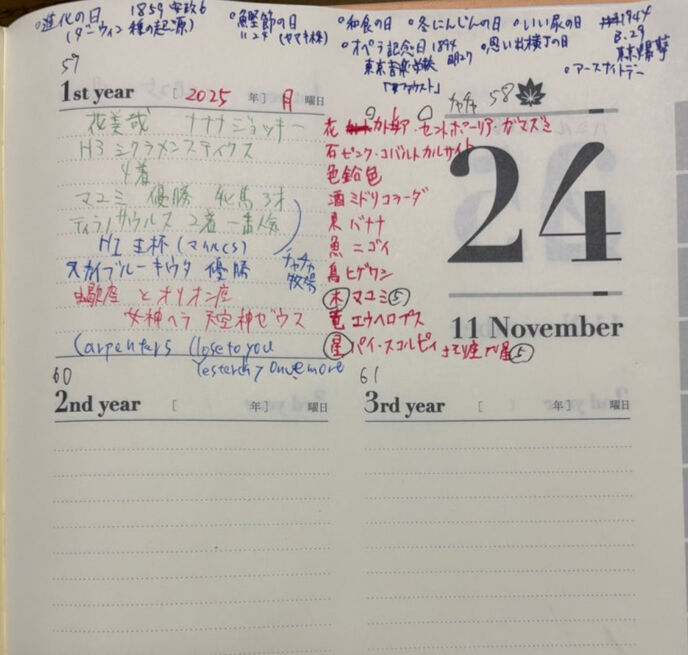 °進化の日 1859 安政6
(ダーウィン 種の起源)
°鰹節の日
11.24 (ヤマキ株)
°和食の日 °冬にんじんの日 °いい尿の日
°オペラ記念日 1894 °思い出横丁の日
東京音楽学校 明27
「ファウスト」
1944
B-29
東京爆撃
°アースナイトデー
59
1st year [ 2025 年] 月 曜日
花美哉 ナナナジョッキー
H3 シクラメンステイクス
4着
マユミ 優勝 牝馬3才
ティラノサウルス 2着 一番人気
H1 王杯 (マイルCS)
スカイブルーキウタ 優勝
チャチャ
牧場
蠍座 とオリオン座
女神ヘラ 天空神ゼウス
Carpenters Close to you
Yesterday once more
チャチャ 58
花 ・セントポーリア・ガマズミ
石 ピンク・コバルトカルサイト
色 鉛色
酒 ミドリコラーダ
果 バナナ
魚 ニゴイ
鳥 ヒゲワシ
木 マユミ⑤
竜 エウヘロプス
星 パイ・スコルピィ さそり座 π星⑤
24
11 November
60
2nd year [ 年] 曜日
61
3rd year [ 年] 曜日